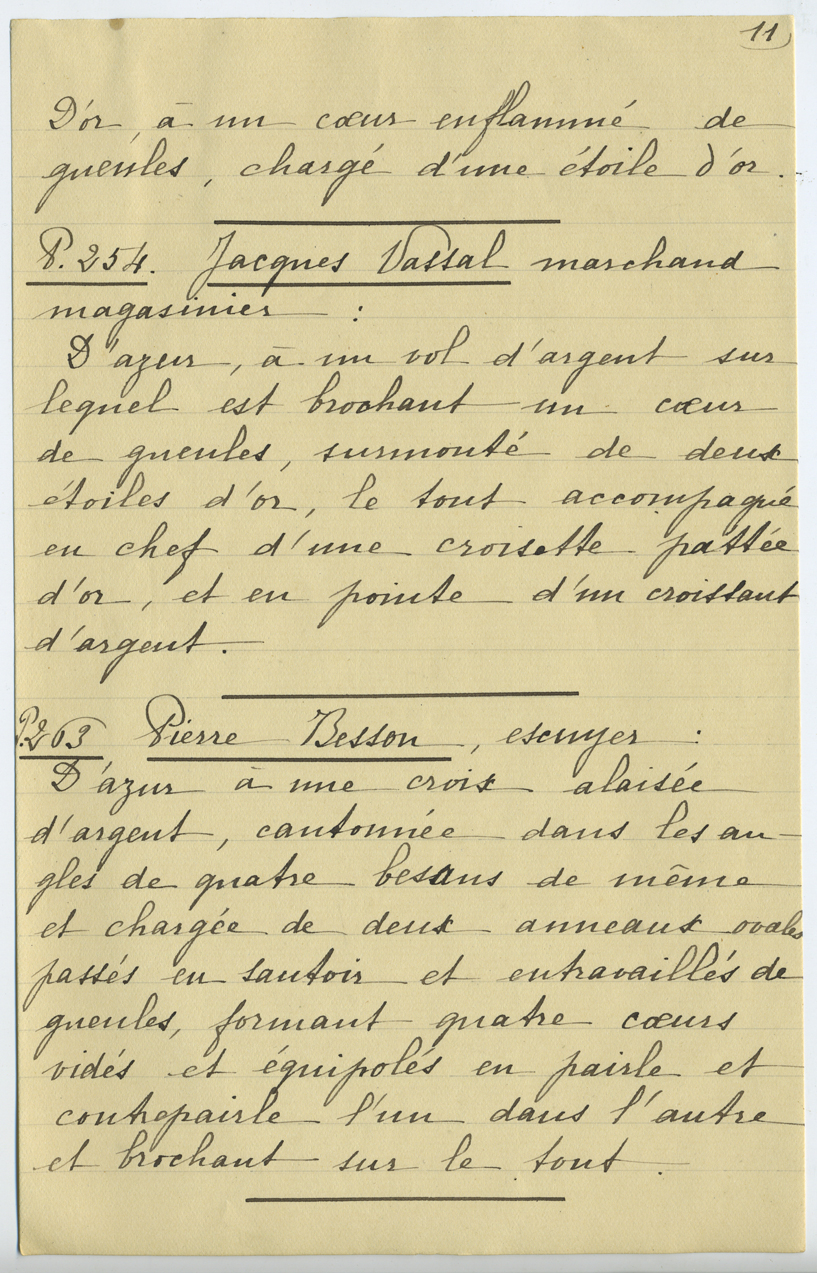 11
D'or, à un cœur enflammé de
gueules, chargé d'une étoile d'or.
P. 254. Jacques Vassal marchand
magasinier :
D'azur, à un vol d'argent sur
lequel est brochant un cœur
de gueules, surmonté de deux
étoiles d'or, le tout accompagné
en chef d'une croisette pattée
d'or, et en pointe d'un croissant
d'argent.
P. 263 Pierre Besson, escuyer :
D'azur à une croix alaisée
d'argent, cantonnée dans les an-
gles de quatre besans de même
et chargée de deux anneaux ovales
passés en sautoir et entravaillés de
gueules, formant quatre cœurs
vidés et équipolés en pairle et
contrepairle l'un dans l'autre
et brochant sur le tout.